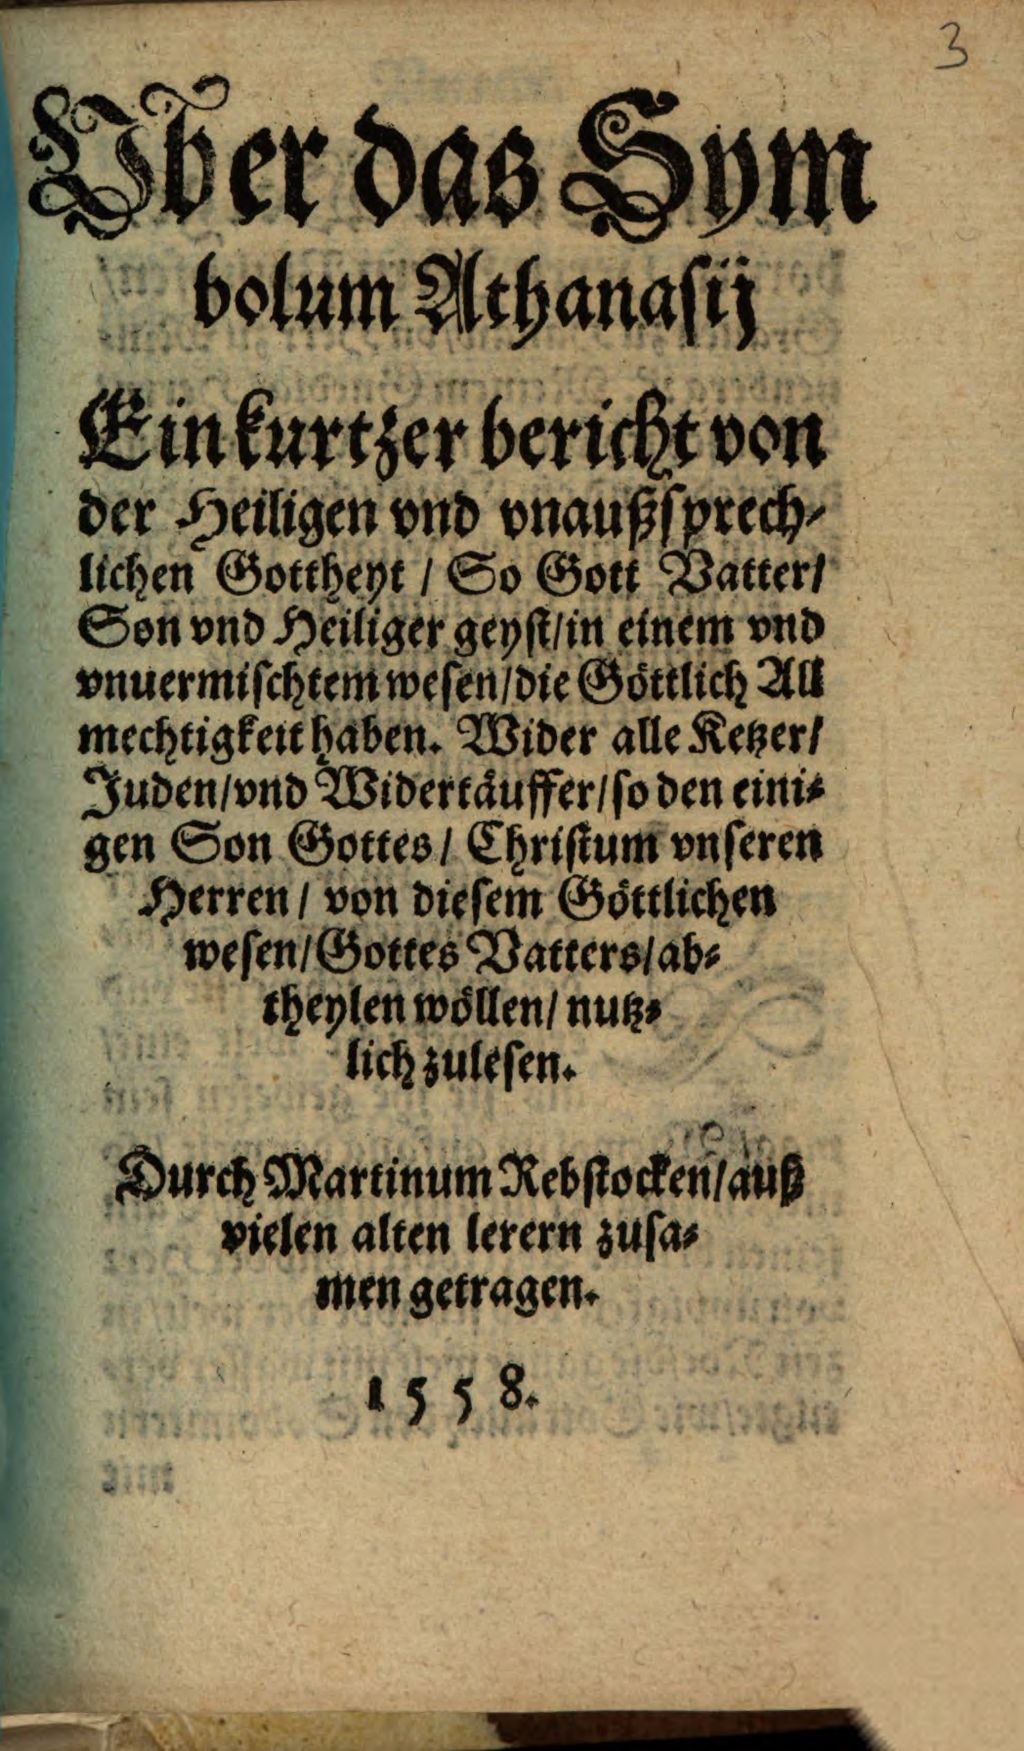 3
Vber das Sym
bolum Athanasij
Ein kurtzer bericht von
der Heiligen vnd vnaußsprech-
lichen Gottheyt / So Gott Vatter/
Son vnd Heiliger geyst/in einem vnd
vnuermischtem wesen/die Göttlich All
mechtigkeit haben. Wider alle Ketzer/
Juden/vnd Widertäuffer/so den eini-
gen Son Gottes/ Christum vnseren
Herren/ von diesem Göttlichen
wesen/Gottes Vatters/ab-
theylen wöllen/ nutz-
lich zulesen.
Durch Martinum Rebstocken/auß
vielen alten lerern zusa-
men getragen.
1558.